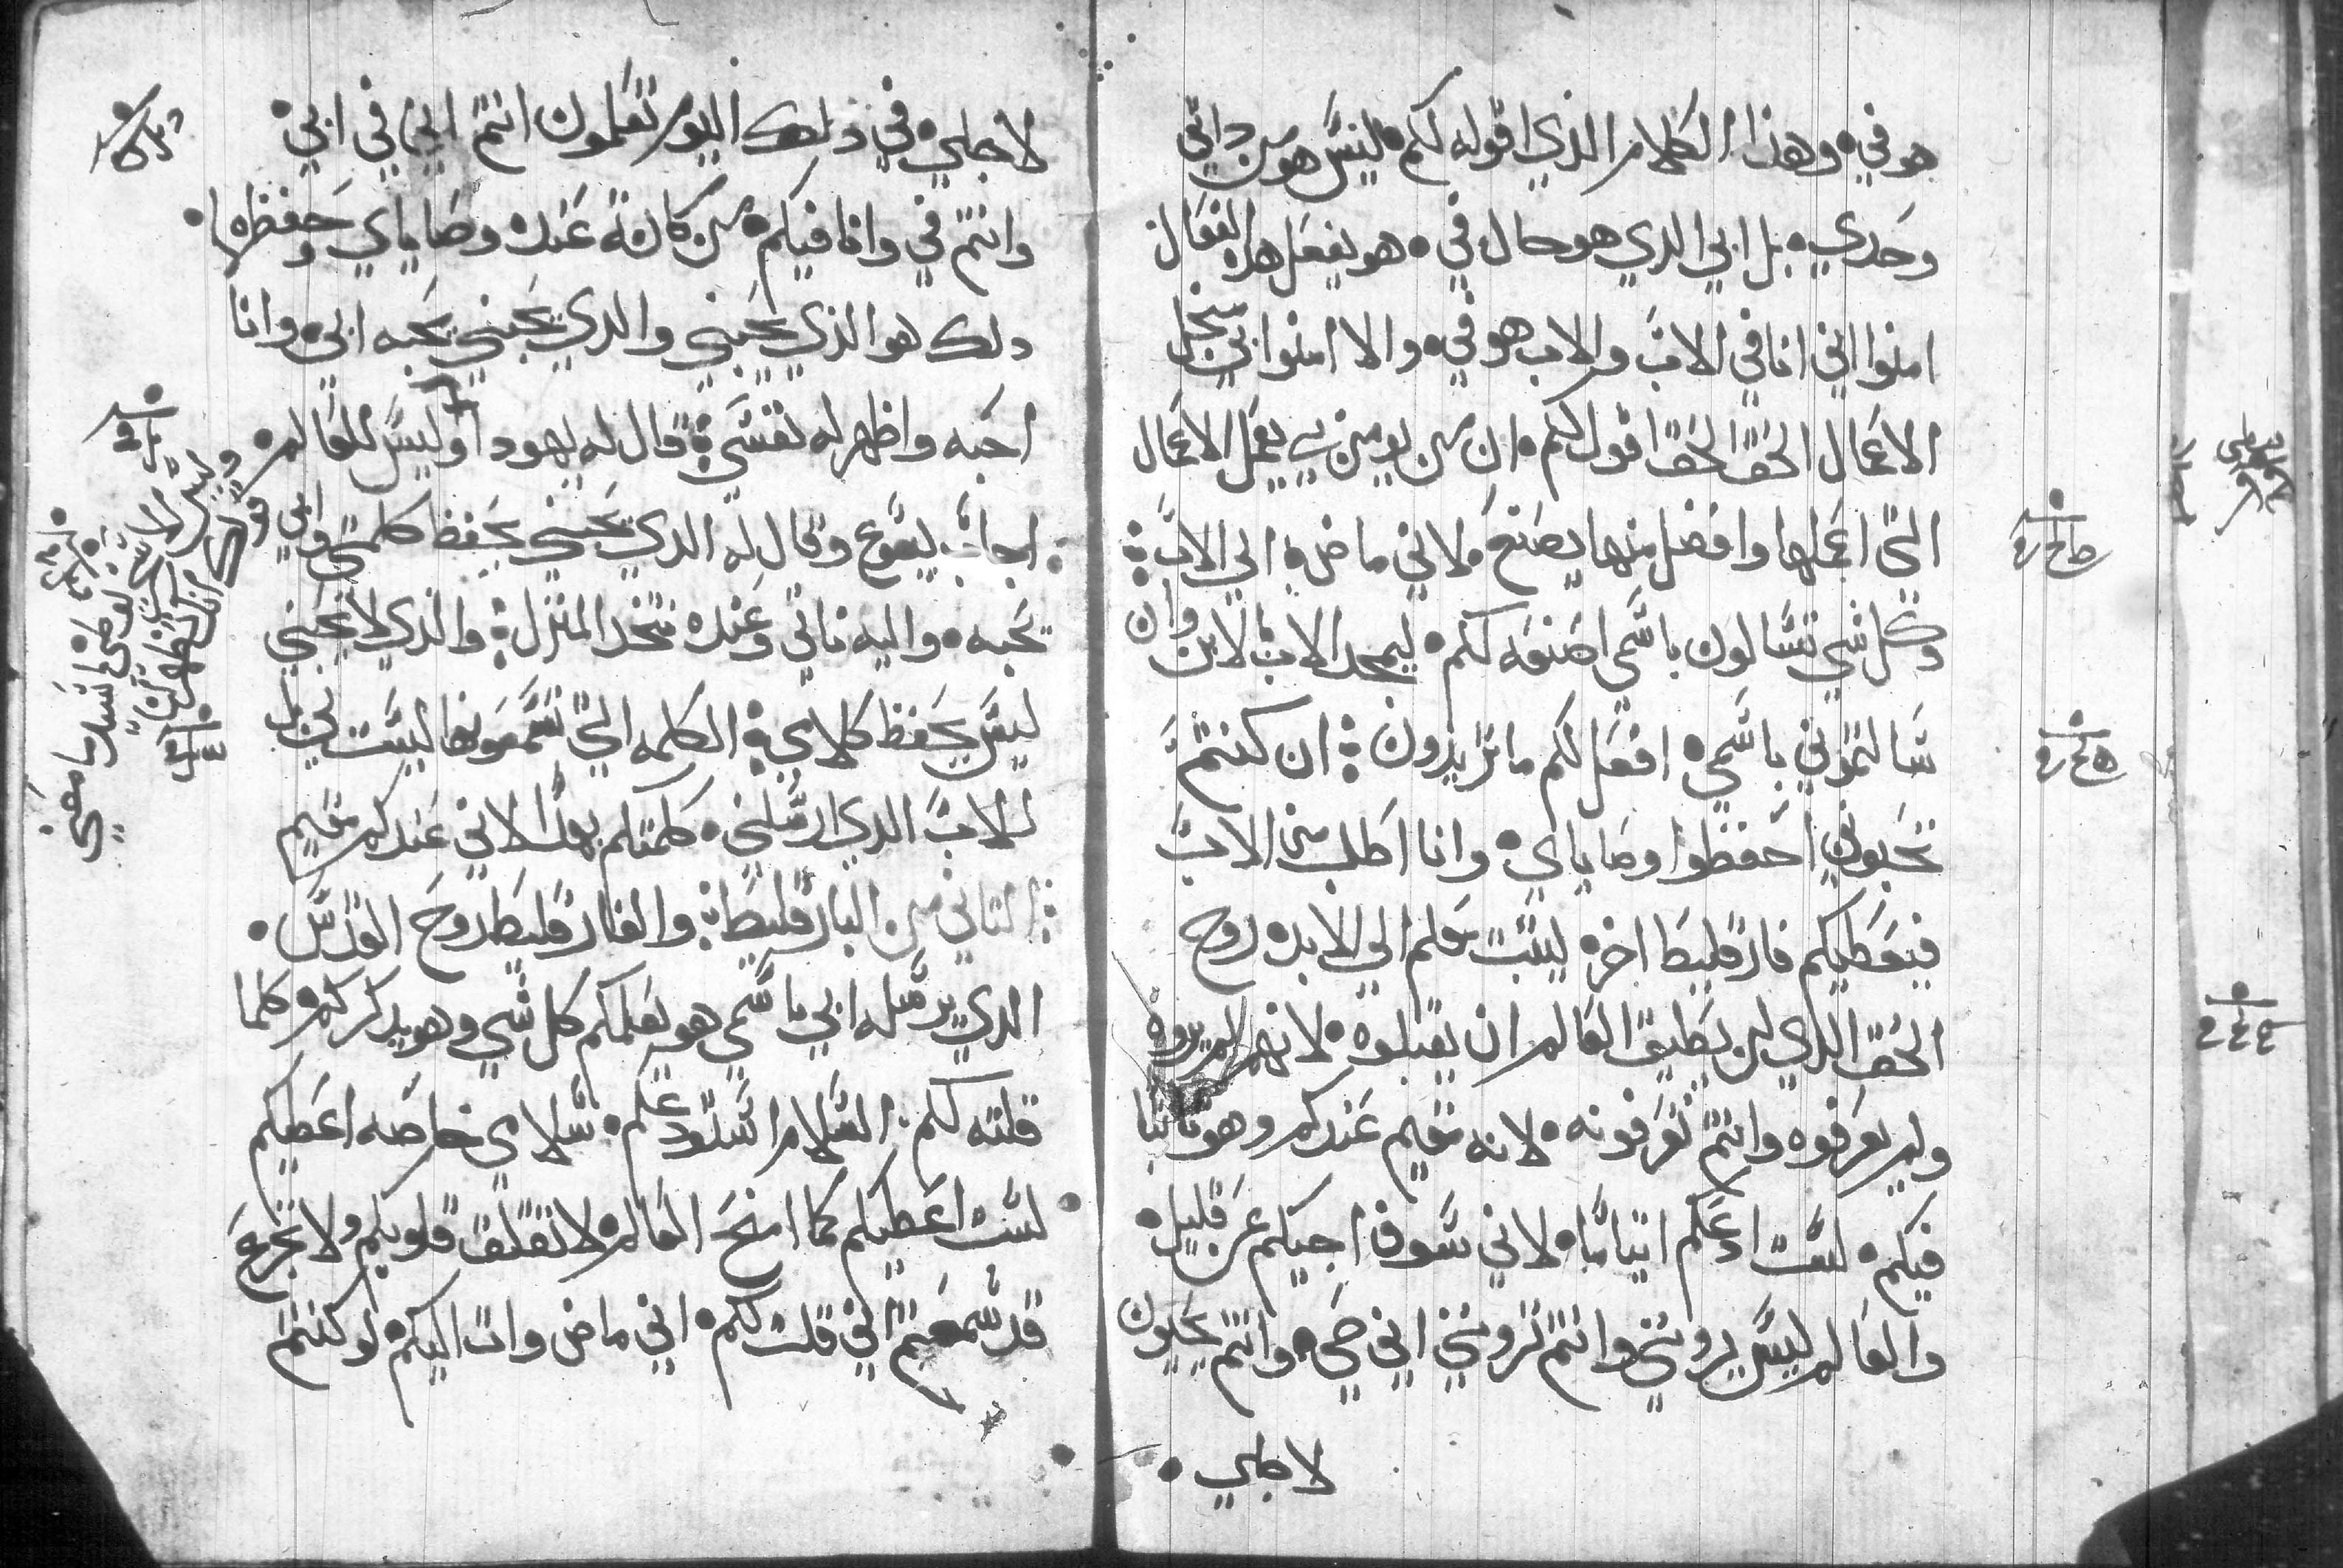 هو في • وهذا الكلام الذي اقوله لكم • ليس هو من داتي
وحدي • بل ابي الدي هو حال في • هو يفعل هده الفعال
امنوا اني انا في الاب والاب هو في • والا امنوا بي
الاعمال الحق الحق اقول لكم • ان من يومن بي يعمل الاعمال
التي اعملها وافضل منها يصنع • لاني ماض الي الاب
وكل شي تسالون باسمي اصنعه لكم • ليمجد الاب بالابن وان
سالتموني باسمي • افعل لكم ما تريدون ان كنتم
تحبوني احفظوا وصاياي • وانا اطلب من الاب
فيعطيكم فارقليط اخر • ليتبت معكم الي الابد • روح
الحق الدي لن يطيق العالم ان يقبلوه • لانهم لم يروه
ولم يعرفوه وانتم تعرفونه • لانه مقيم عندكم وهو تابتا
فيكم • لست ادعكم ايتاما • لاني سوف اجيكم عن قليل •
والعالم ليس يروني وانتم تروني اني حي • وانتم تحيون
لاجلي •
لاجلي • في دلك اليوم تعلمون انتم اني في ابي •
وانتم في وانا فيكم • من كانة عنده وصاياي وحفظها •
دلك هو الذي يحبني والدي يحبني يحبه ابي • وانا
احبه واظهر له نفسي قال له يهودا وليس للعالم •
اجاب يسوع وقال له الدي يحبني يحفظ كلمتي وابي
يحبه • واليه ناتي وعنده نتخد المنزل والذي لا يحبني
ليس يحفظ كلامي الكلمه التي تسمعونها ليست لي
للاب الدي ارسلني • كلمتكم بهدا لاني عندكم مقيم
التاني من البارقليط والفارقليط روح القدس •
الدي يرسله ابي باسمي هو يعلمكم كل شي وهو يدكركم كلما
قلته لكم • السلام استودعكم • سلامي خاصه اعطيكم
لست اعطيكم كما امنح العالم لا تقلق قلوبكم ولا تجزع
قد سمعتم اني قلت لكم • اني ماض وات اليكم • لو كنتم